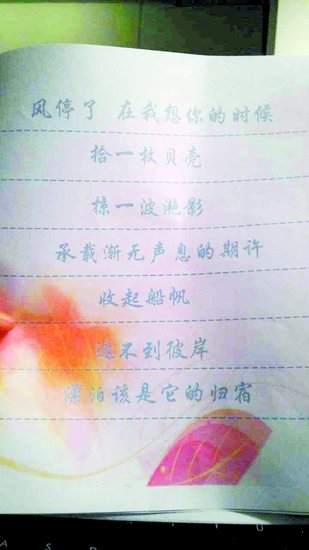 风停了 在我想你的时候
拾一枚贝壳
掠一波滟影
承载渐无声息的期许
收起船帆
达不到彼岸
漂泊该是它的归宿
A S D